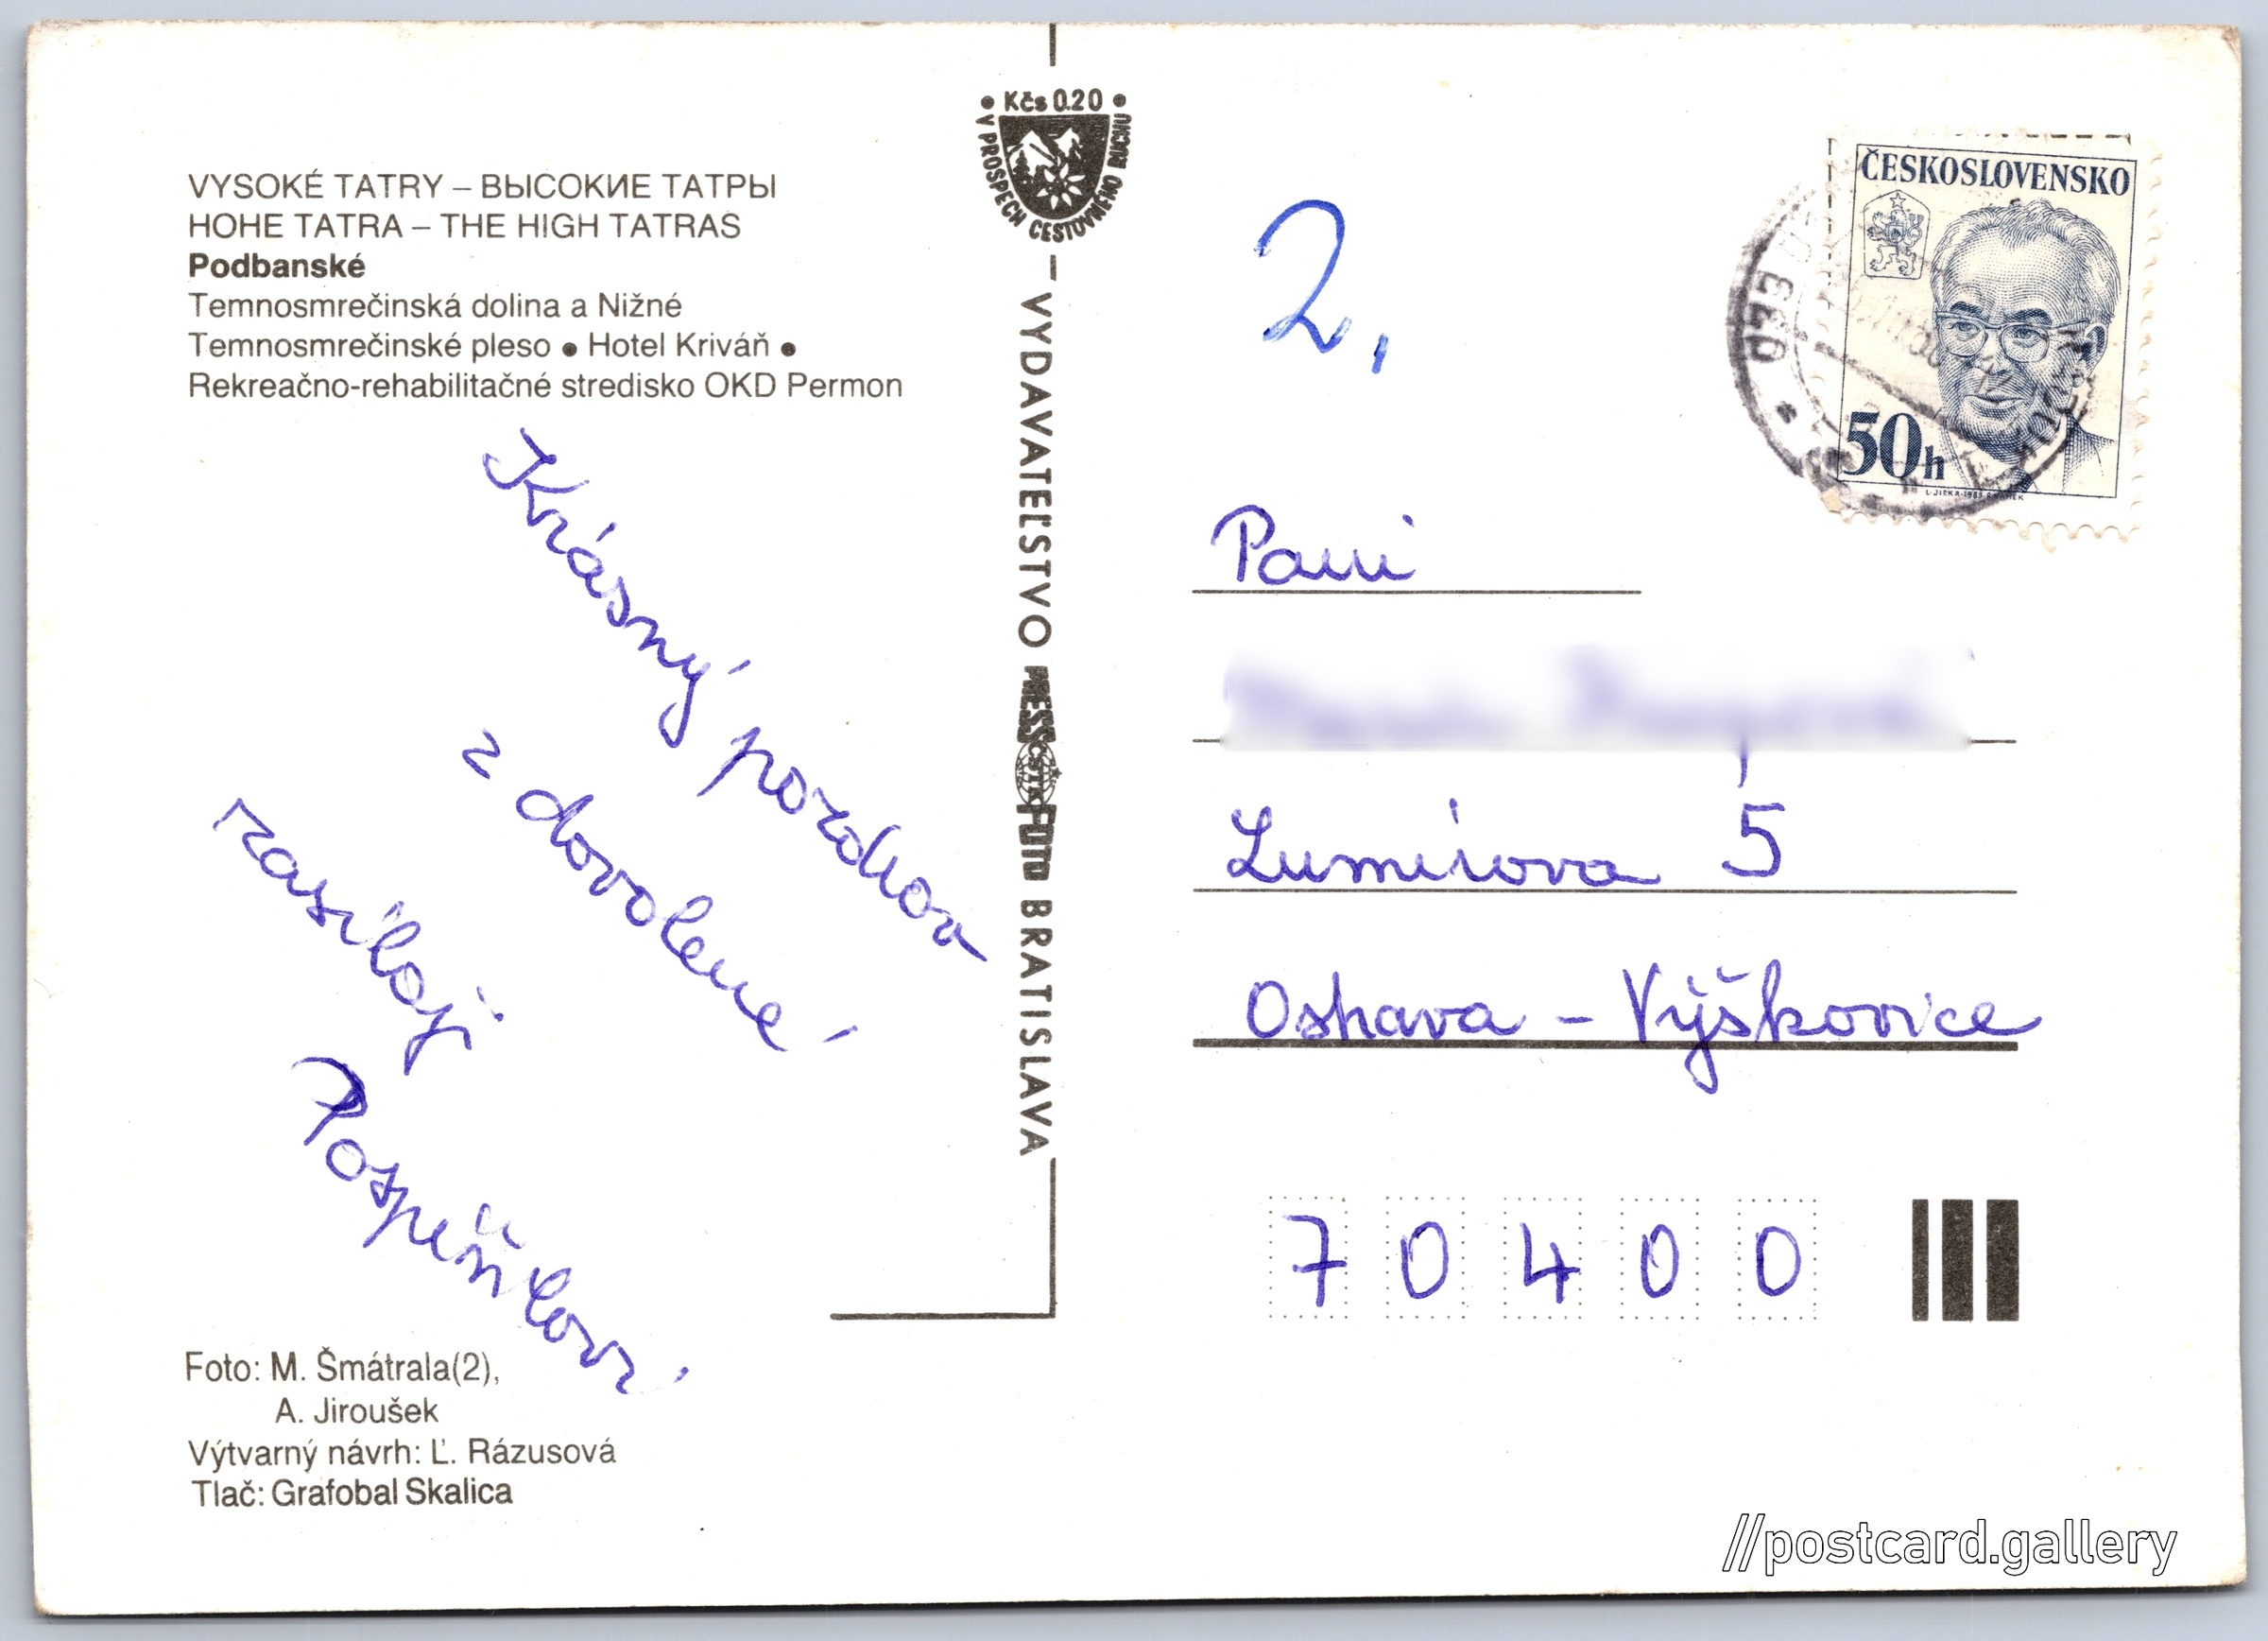 VYSOKÉ TATRY – ВЫСОКИЕ ТАТРЫ
HOHE TATRA – THE HIGH TATRAS
Podbanské
Temnosmrečinská dolina a Nižné
Temnosmrečinské pleso • Hotel Kriváň •
Rekreačno-rehabilitačné stredisko OKD Permon
Krásný pozdrav
z dovolené
zasílají
Pospíšilovi
Foto: M. Šmátrala(2),
A. Jiroušek
Výtvarný návrh: Ľ. Rázusová
Tlač: Grafobal Skalica
• Kčs 0.20 •
V PROSPECH CESTOVNÉHO RUCHU
VYDAVATEĽSTVO PRESSFOTO BRATISLAVA
ČSTK
2.
ČESKOSLOVENSKO
50h
033
Paní
Lumírova 5
Ostrava - Výškovice
70400
//postcard.gallery